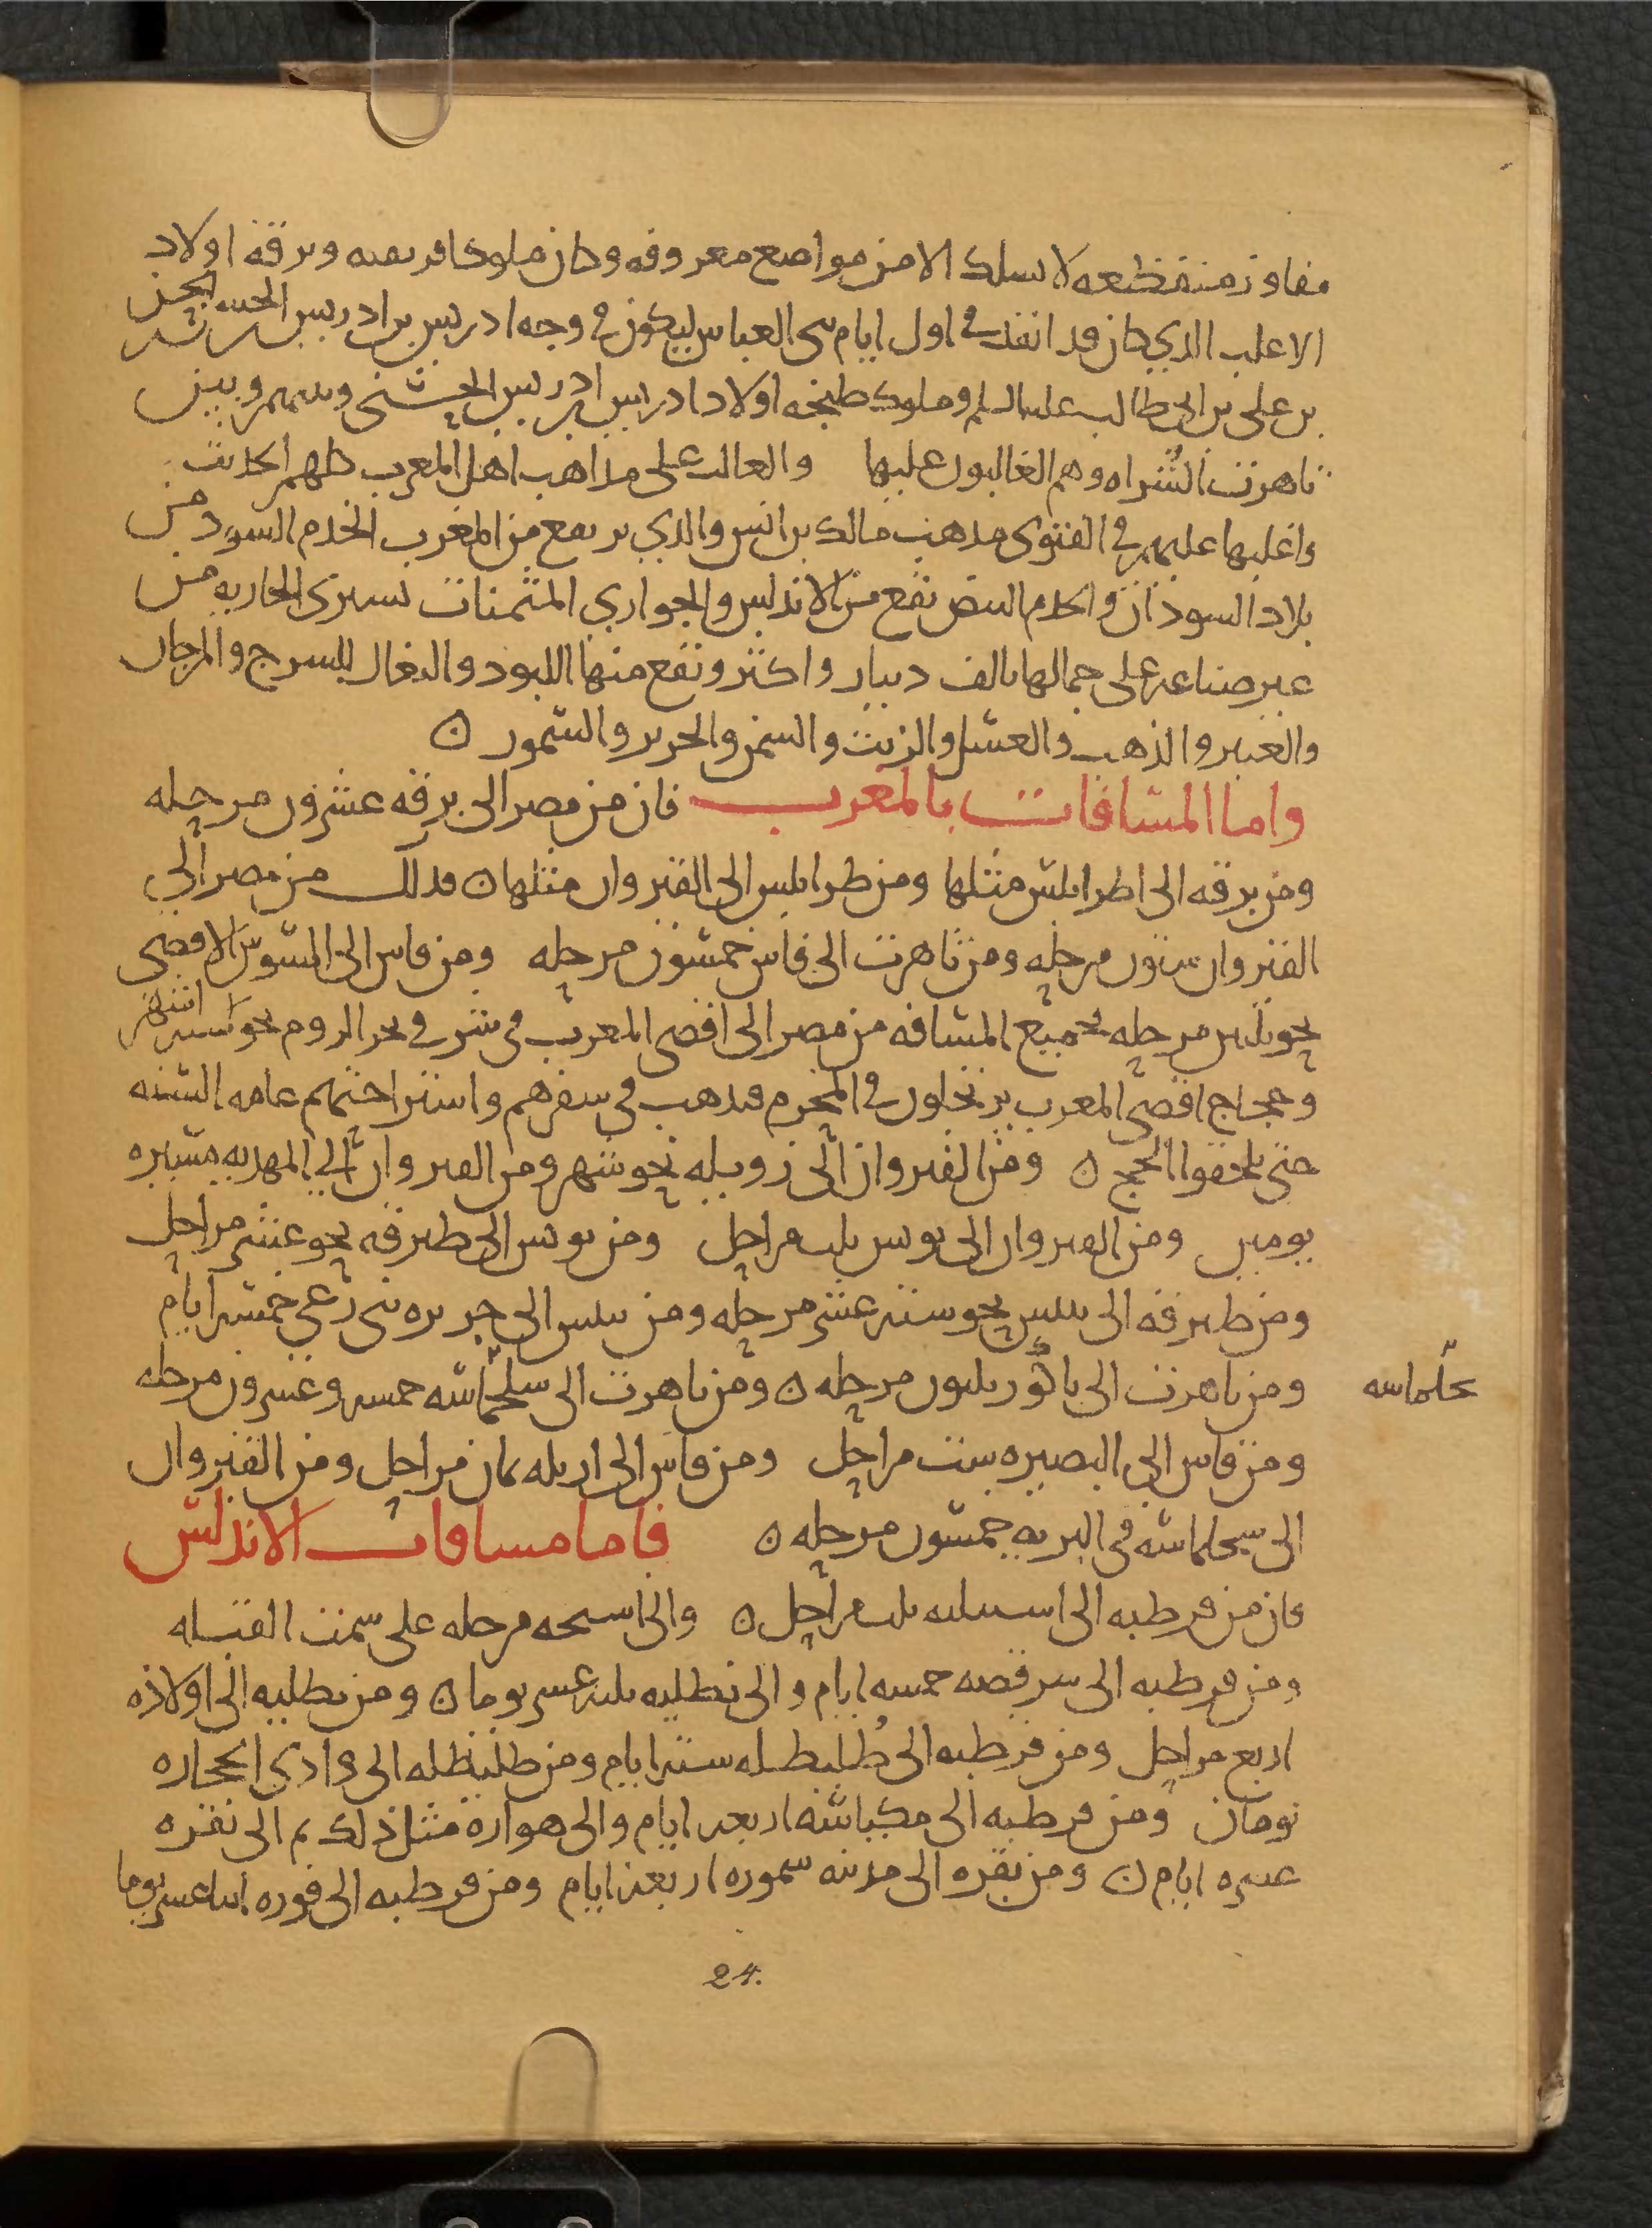 مفاوز منقطعه لا يسلك الا من مواضع معروفه وكان ملوك افريقيه وبرقه اولاد
الاغلب الذي كان قد انفذ في اول ايام بنى العباس ليكون في وجه ادريس بن ادريس
بن على بن ابى طالب عليه السلم وملوك طنجه اولاد ادريس بن ادريس الحسنى وبينهم وبين
تاهرت الشراه وهم الغالبون عليها والغالب على مذاهب اهل المغرب كلهم الحديث
واغلبها عليهم في الفتوى مذهب مالك بن انس والذي يرتفع من المغرب الخدم السود من
بلاد السودان والخدم البيض تقع من الاندلس والجواري المثمنات تسترى الجاريه من
غير صناعه على جمالها بالف دينار واكثر وتقع منها اللبود والبغال للسرج والمرجان
والعنبر والذهب والعسل والزيت والسمن والحرير والسمور ن
واما المسافات بالمغرب فان من مصر الى برقه عشرون مرحله
ومن برقه الى اطرابلس مثلها ومن طرابلس الى القيروان مثلها ن فذلك من مصر الى
القيروان ستون مرحله ومن تاهرت الى فاس خمسون مرحله ومن فاس الى السوس الاقصى
نحو ثلثين مرحله فجميع المسافه من مصر الى اقصى المغرب في شرقي بحر الروم نحو سته اشهر
وحجاج اقصى المغرب يرتحلون في المحرم فيذهب في سفرهم واستراحتهم عامه السنه
حتى يلحقوا الحج ن ومن القيروان الى زويله نحو شهر ومن القيروان الى المهديه مسيره
يومين ومن القيروان الى تونس ثلث مراحل ومن تونس الى طبرقه نحو عشر مراحل
ومن طبرقه الى تنس نحو سته عشر مرحله ومن تنس الى جزيره بنى زغى خمسه ايام
ومن تاهرت الى ناكور ثلثون مرحله ن ومن تاهرت الى سلجماسه خمسه وعشرون مرحله
جلماسه
ومن فاس الى البصيره ست مراحل ومن فاس الى ازيله ثمان مراحل ومن القيروان
الى سجلماسه في البريه خمسون مرحله ن فاما مسافات الاندلس
فان من قرطبه الى اسبيليه ثلث مراحل ن والى اسيجه مرحله على سمت القبله
ومن قرطبه الى سرقصه خمسه ايام والى تطليه ثلثه عشر يوما ن ومن تطليه الى اولاذه
اربع مراحل ومن قرطبه الى طُليطله سته ايام ومن طليطله الى وادي الحجاره
يومان ومن قرطبه الى مكناسه اربعه ايام والى هواره مثل ذلك ثم الى نفزه
عشره ايام ن ومن نفزه الى مدينه سموره اربعه ايام ومن قرطبه الى قوره اثنا عشر يوما
24.